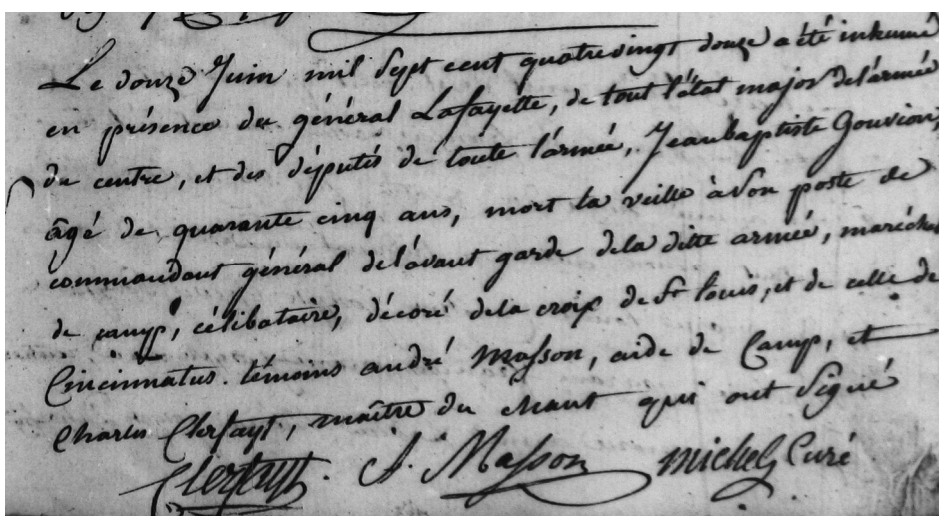 Le douze Juin mil sept cent quatrevingt douze a été inhumé
en présence du général Lafayette, de tout l'état major de l'armée
du centre, et des députés de toute l'armée, Jean baptiste Gouvion,
âgé de quarante cinq ans, mort la veille à son poste de
commandant général de l'avant garde de la ditte armée, maréchal
de camp, célibataire, décoré de la croix de St louis, et de celle de
Cincinnatus. témoins andré Masson, aide de Camp, et
Charles Clerfayt, maître du chant qui ont signé
Clerfayt. A. Masson michel Curé